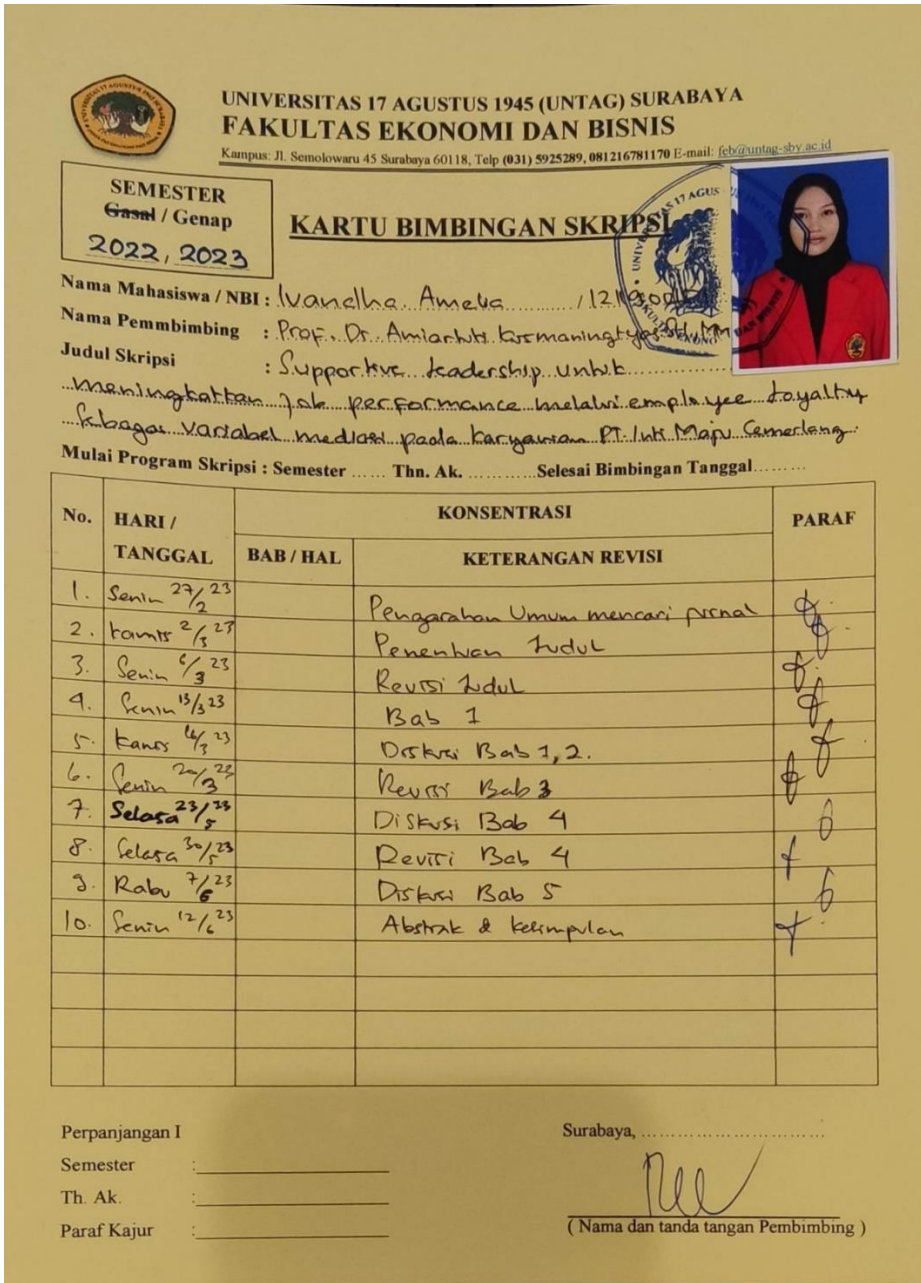 UNIVERSITAS 17 AGUSTUS 1945 (UNTAG) SURABAYA
FAKULTAS EKONOMI DAN BISNIS
Kampus: Jl. Semolowaru 45 Surabaya 60118, Telp (031) 5925289, 081216781170 E-mail: feb@untag-sby.ac.id
SEMESTER
Gasal / Genap
2022, 2023
KARTU BIMBINGAN SKRIPSI
Nama Mahasiswa / NBI : Ivandha Amelia / 121
Nama Pemmbimbing : Prof. Dr. Amiartuti Kusmaningtyas SH, MM
Judul Skripsi : Supportive Leadership Untuk
meningkatkan Job performance melalui employee Loyalty
Sebagai Variabel mediasi pada karyawan PT. Inti Maju Cemerlang.
Mulai Program Skripsi : Semester ...... Thn. Ak. ........... Selesai Bimbingan Tanggal.........
No. HARI / TANGGAL KONSENTRASI PARAF
BAB / HAL KETERANGAN REVISI
1. Senin 27/2 23 Pengarahan Umum mencari jurnal
2. Kamis 2/3 23 Penentuan Judul
3. Senin 6/3 23 Revisi Judul
4. Senin 13/3 23 Bab 1
5. Kamis 16/3 23 Diskusi Bab 1, 2.
6. Senin 20/3 23 Revisi Bab 3
7. Selasa 23/5 23 Diskusi Bab 4
8. Selasa 30/5 23 Revisi Bab 4
9. Rabu 7/6 23 Diskusi Bab 5
10. Senin 12/6 23 Abstrak & kesimpulan
Perpanjangan I
Surabaya, ..............................
Semester :
Th. Ak. :
Paraf Kajur :
( Nama dan tanda tangan Pembimbing )